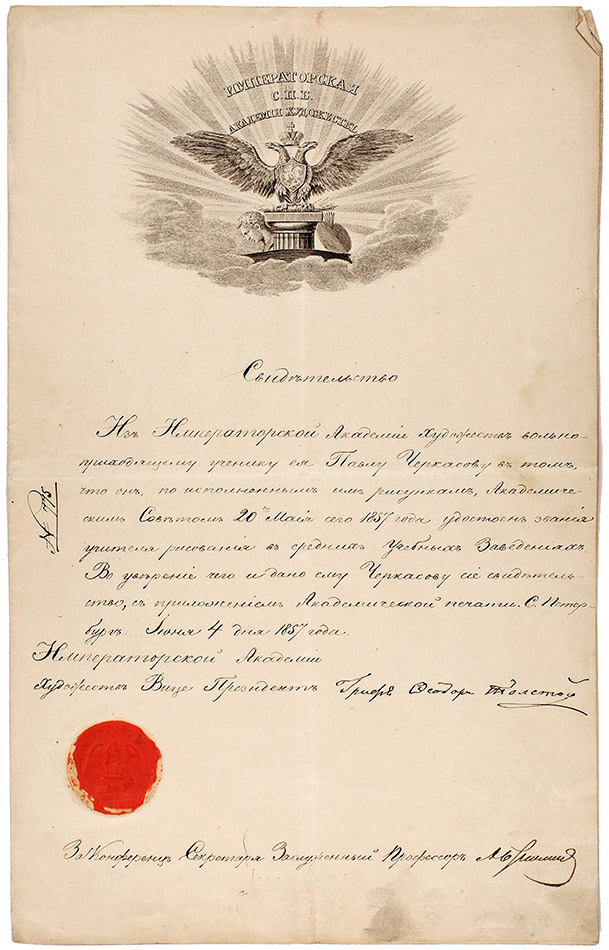 ИМПЕРАТОРСКАЯ
С.П.Б.
АКАДЕМІЯ ХУДОЖЕСТВЪ
Свидѣтельство
Изъ Императорской Академіи Художествъ вольно-
приходящему ученику ея Павлу Черкасову въ томъ,
что онъ, по исполненнымъ имъ рисункамъ, Академиче-
скимъ Совѣтомъ 20го Майя сего 1857 года удостоенъ званія
учителя рисованія въ среднихъ Учебныхъ Заведеніяхъ.
Во увѣреніе чего и дано ему Черкасову сіе свидѣтель-
ство, съ приложеніемъ Академической печати. С. Петер-
бургъ. Іюня 4 дня 1857 года.
Императорской Академіи
Художествъ Вице Президентъ Графъ Ѳедоръ Толстой
За Конференцъ Секретаря Заслуженный Профессоръ